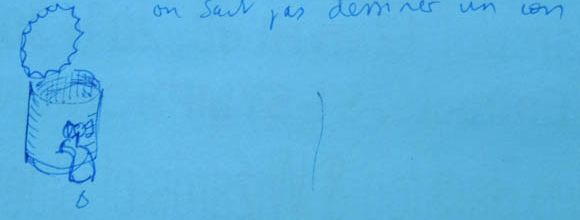 on sait pas dessiner un con